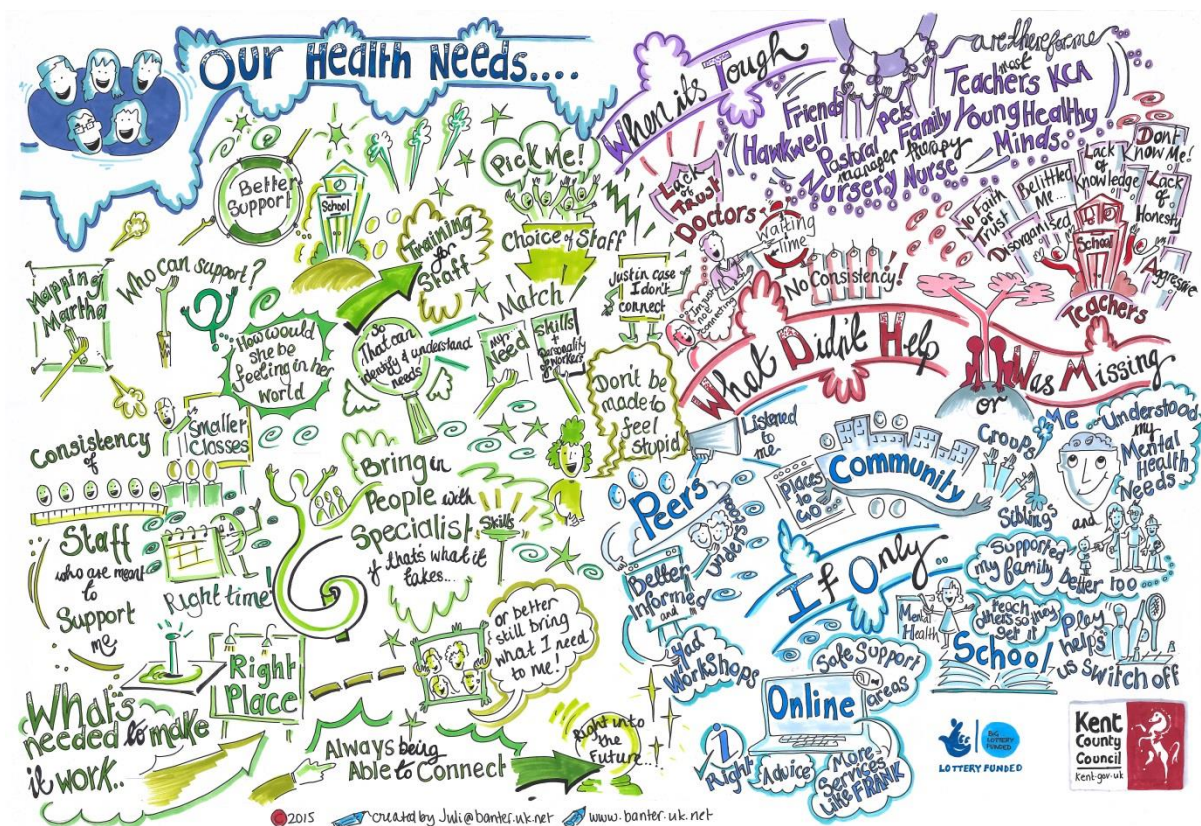 Our Health Needs....
Better
Support
School
Pick Me!
Training
for
Staff
Choice of Staff
Mapping
Martha
Who can support?
How would
she be
feeling in her
world
So
That can
identify & understand
needs
Match
my
Need
Skills
+
Personality
of workers
Just in case
I don't
connect
Don't be
made to
feel
stupid
Consistency
of
Staff
who are meant
to
Support
me
Smaller
Classes
Right time!
Bring in
People with
Specialist
if thats what it
takes...
Skills
Right
Place
or better
still bring
what I need
to me!
What's
needed to make
it work..
Always being
Able to Connect
Right into
the
Future..!
When its Tough
are there for me
most
Teachers KCA
Friends
Hankwell
pets
Family
Young Healthy
Minds
Pastoral
manager
therapy
Nursery Nurse
Lack
of
Trust
Doctors
Waiting
Time
I'm just
not
connecting
No Consistency!
No Faith
or
Trust
Disorganised
Belittled
Me...
Lack
of
Knowledge
Don't
Know Me!
Lack
of
Honesty
Aggressive
School
Teachers
What Didn't Help
or
Was Missing
Listened
to
me
Peers
Understood
Better
Informed
and
Had
Workshops
Places
to
Go
Community
Groups
Siblings
Me
Understood
my
Mental
Health
Needs
and
Supported
my family
better too
If Only..
Mental
Health
teach
others so they
get it
School
Play
helps
us switch off
Safe Support
areas
Online
i
Right
Advice
More
Services
Like FRANK
BIG
LOTTERY
FUNDED
LOTTERY FUNDED
Kent
County
Council
Kent.gov.uk
© 2015
created by Juli@banter.uk.net
www.banter.uk.net